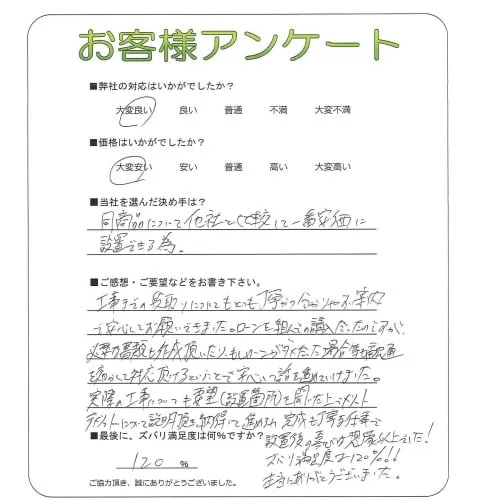 お客様アンケート
■弊社の対応はいかがでしたか？
大変良い 良い 普通 不満 大変不満
■価格はいかがでしたか？
大変安い 安い 普通 高い 大変高い
■当社を選んだ決め手は？
同商品について他社と比較して一番安価に
設置できる為。
■ご感想・ご要望などをお書き下さい。
工事までの段取りについてもとても丁寧かつ分かりやすい案内
で安心してお願いできました。ローンを組んでの購入だったのですが、
必要書類も作成頂いたり、もしローンがダメだった場合も融通
を効かして対応頂けるということで安心して話を進めていけました。
実際の工事についても要望(設置箇所)を聞いた上でメリット
デメリットについて説明頂き納得して進められ、完成も丁寧な仕事で
設置後の喜びは想像以上でした！
ズバリ満足度は120%!!!
本当にありがとうございました。
■最後に、ズバリ満足度は何%ですか？
120 %
ご協力頂き、誠にありがとうございました。